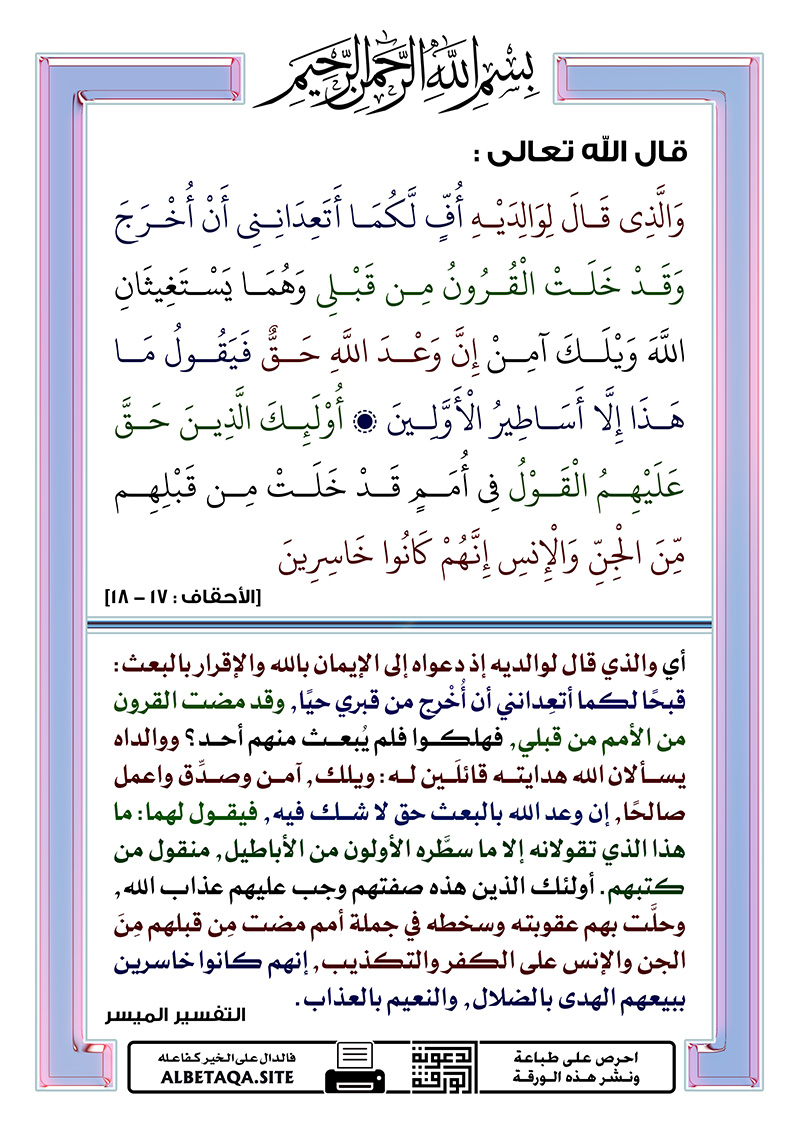 بِسْمِ اللَّهِ الرَّحْمَٰنِ الرَّحِيمِ
قال الله تعالى :
وَالَّذِي قَالَ لِوَالِدَيْهِ أُفٍّ لَّكُمَا أَتَعِدَانِنِي أَنْ أُخْرَجَ
وَقَدْ خَلَتْ الْقُرُونُ مِن قَبْلِي وَهُمَا يَسْتَغِيثَانِ
اللَّهَ وَيْلَكَ آمِنْ إِنَّ وَعْدَ اللَّهِ حَقٌّ فَيَقُولُ مَا
هَذَا إِلَّا أَسَاطِيرُ الْأَوَّلِينَ ۞ أُوْلَئِكَ الَّذِينَ حَقَّ
عَلَيْهِمُ الْقَوْلُ فِي أُمَمٍ قَدْ خَلَتْ مِن قَبْلِهِم
مِّنَ الْجِنِّ وَالْإِنسِ إِنَّهُمْ كَانُوا خَاسِرِينَ
[الأحقاف : ١٧ – ١٨]
أي والذي قال لوالديه إذ دعواه إلى الإيمان بالله والإقرار بالبعث:
قبحًا لكما أتعدانني أن أُخْرج من قبري حيًا, وقد مضت القرون
من الأمم من قبلي, فهلكوا فلم يُبعث منهم أحد؟ ووالداه
يسألان الله هدايته قائلَين له: ويلك, آمن وصدِّق واعمل
صالحًا, إن وعد الله بالبعث حق لا شك فيه, فيقول لهما: ما
هذا الذي تقولانه إلا ما سطَّره الأولون من الأباطيل, منقول من
كتبهم. أولئك الذين هذه صفتهم وجب عليهم عذاب الله,
وحلَّت بهم عقوبته وسخطه في جملة أمم مضت مِن قبلهم مِنَ
الجن والإنس على الكفر والتكذيب, إنهم كانوا خاسرين
ببيعهم الهدى بالضلال, والنعيم بالعذاب.
التفسير الميسر
احرص على طباعة
ونشر هذه الورقة
الورقة
الدعوية
فالدال على الخير كفاعله
ALBETAQA.SITE